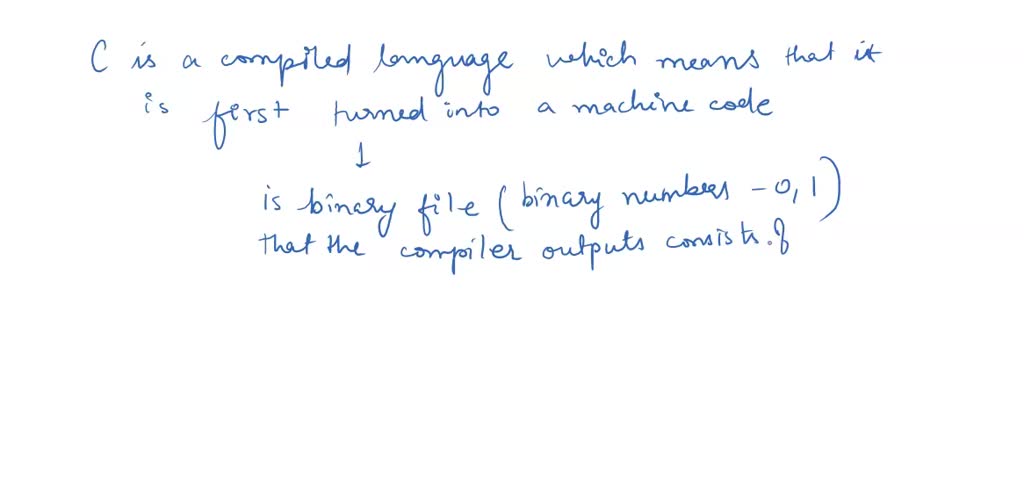 C is a compiled language which means that it
is first turned into a machine code
↓
is binary file (binary numbers - 0,1)
that the compiler outputs consists of